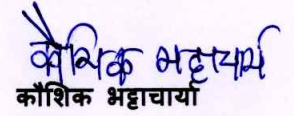 कौशिक भट्टाचार्य
कौशिक भट्टाचार्या